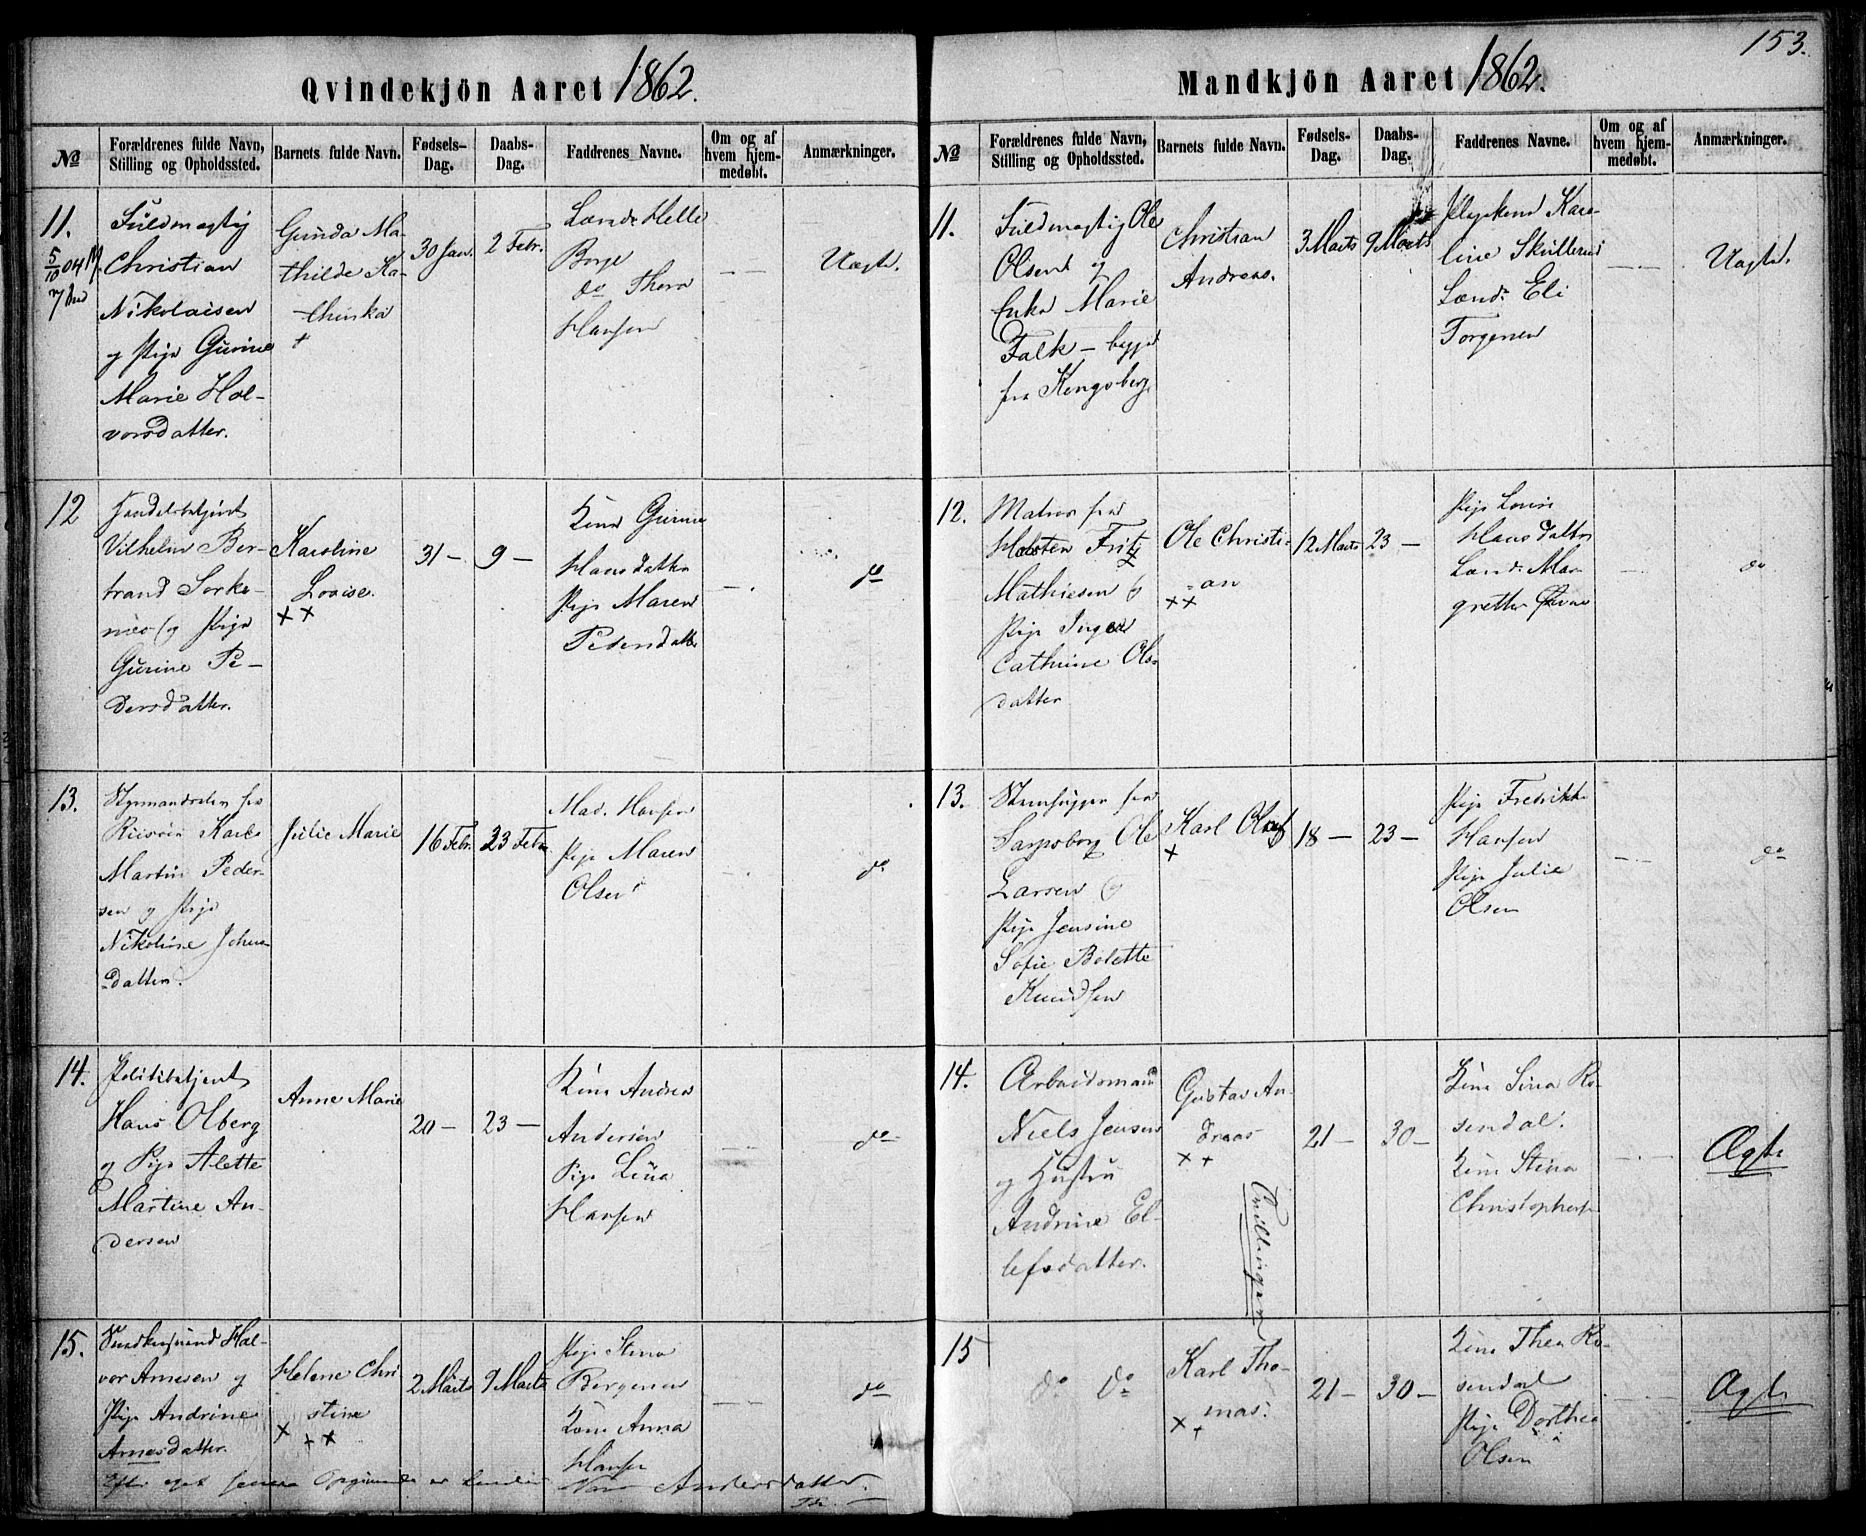 153.
Qvindekjön Aaret 1862.
No
Forældrenes fulde Navn, Stilling og Opholdssted.
Barnets fulde Navn.
Fødsels-Dag.
Daabs-Dag.
Faddrenes Navne.
Om og af hvem hjemmedøbt.
Anmærkninger.
11.
Fuldmægtig
Christian
Nikolaisen
og Pige Gurine
Marie Hal-
vorsdatter.
Gunda Ma-
thilde Ka-
thinka
+
30 Jan.
2 Febr.
Helle
Borge
do Thora
Hansen
Uægte.
12
Handelsbetjent
Vilhelm Ber-
trand
og Pige
Gurine Pe-
dersdatter.
Karoline
Lovise.
++
31 —
9 —
Kone Gurine
Hansdatter
Pige Maren
Pedersdatter
do
13.
Styrmand
Karl
Martin Peder-
sen og Pige
Nikoline Johan-
datter.
Julie Marie
16 Febr.
23 Febr.
Mad. Hansen
Pige Maren
Olsen
do
14.
Politibetjent
Hans Olberg
og Pige Alette
Martine An-
dersen
Anne Marie
20 —
23 —
Kone Andrea
Andersen
Pige Lina
Hansen
do
15.
Hal-
vor Arnesen og
Pige Andrine
Arnesdatter.
Helene Chri
stine
+ + +
2 Marts
9 Marts
Pige Stina
Bergersen
Kone Anna
Hansen
do
Efter eget senere Opgivende er
Andersdatter.
Mandkjön Aaret 1862.
No
Forældrenes fulde Navn, Stilling og Opholdssted.
Barnets fulde Navn.
Fødsels-Dag.
Daabs-Dag.
Faddrenes Navne.
Om og af hvem hjemmedøbt.
Anmærkninger.
11.
Fuldmægtig Ole
Olsen og
Enke Marie
Falk — begge
fra Kongsberg
Christian
Andreas.
3 Marts
9 Marts
Kare-
line Skullerud
Eli
Torgersen
Uægte.
12.
Matros fra
Holsten Fritz
Mathiesen og
Pige Inger
Cathrine Ols-
datter
Ole Christi-
an
++
12 Marts
23 —
Pige Lovise
Hansdatter
Mar
grethe
do
13.
fra
Sarpsborg Ole
Larsen og
Pige Jensine
Sofie Bolette
Knudsen
Karl Oluf
+
18 —
23 —
Pige Fredrikke
Hansen
Pige Julie
Olsen
do
14.
Arbeidsmand
Niels Jensen
og Hustru
Andrine El-
lefsdatter.
Gustav An-
dreas
++
Tvillinger
21 —
30 —
Kone Sina Ro-
sendal.
Kone Stina
Christophersen
Ægte
15
do do
Karl Tho-
mas.
++
21 —
30 —
Kone Thea Ro-
sendal
Pige Dorthea
Olsen
Ægte